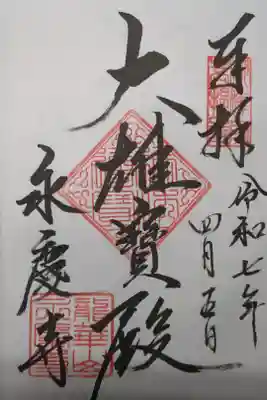 奉拝
令和七年
四月五日
大雄寶殿
永慶寺